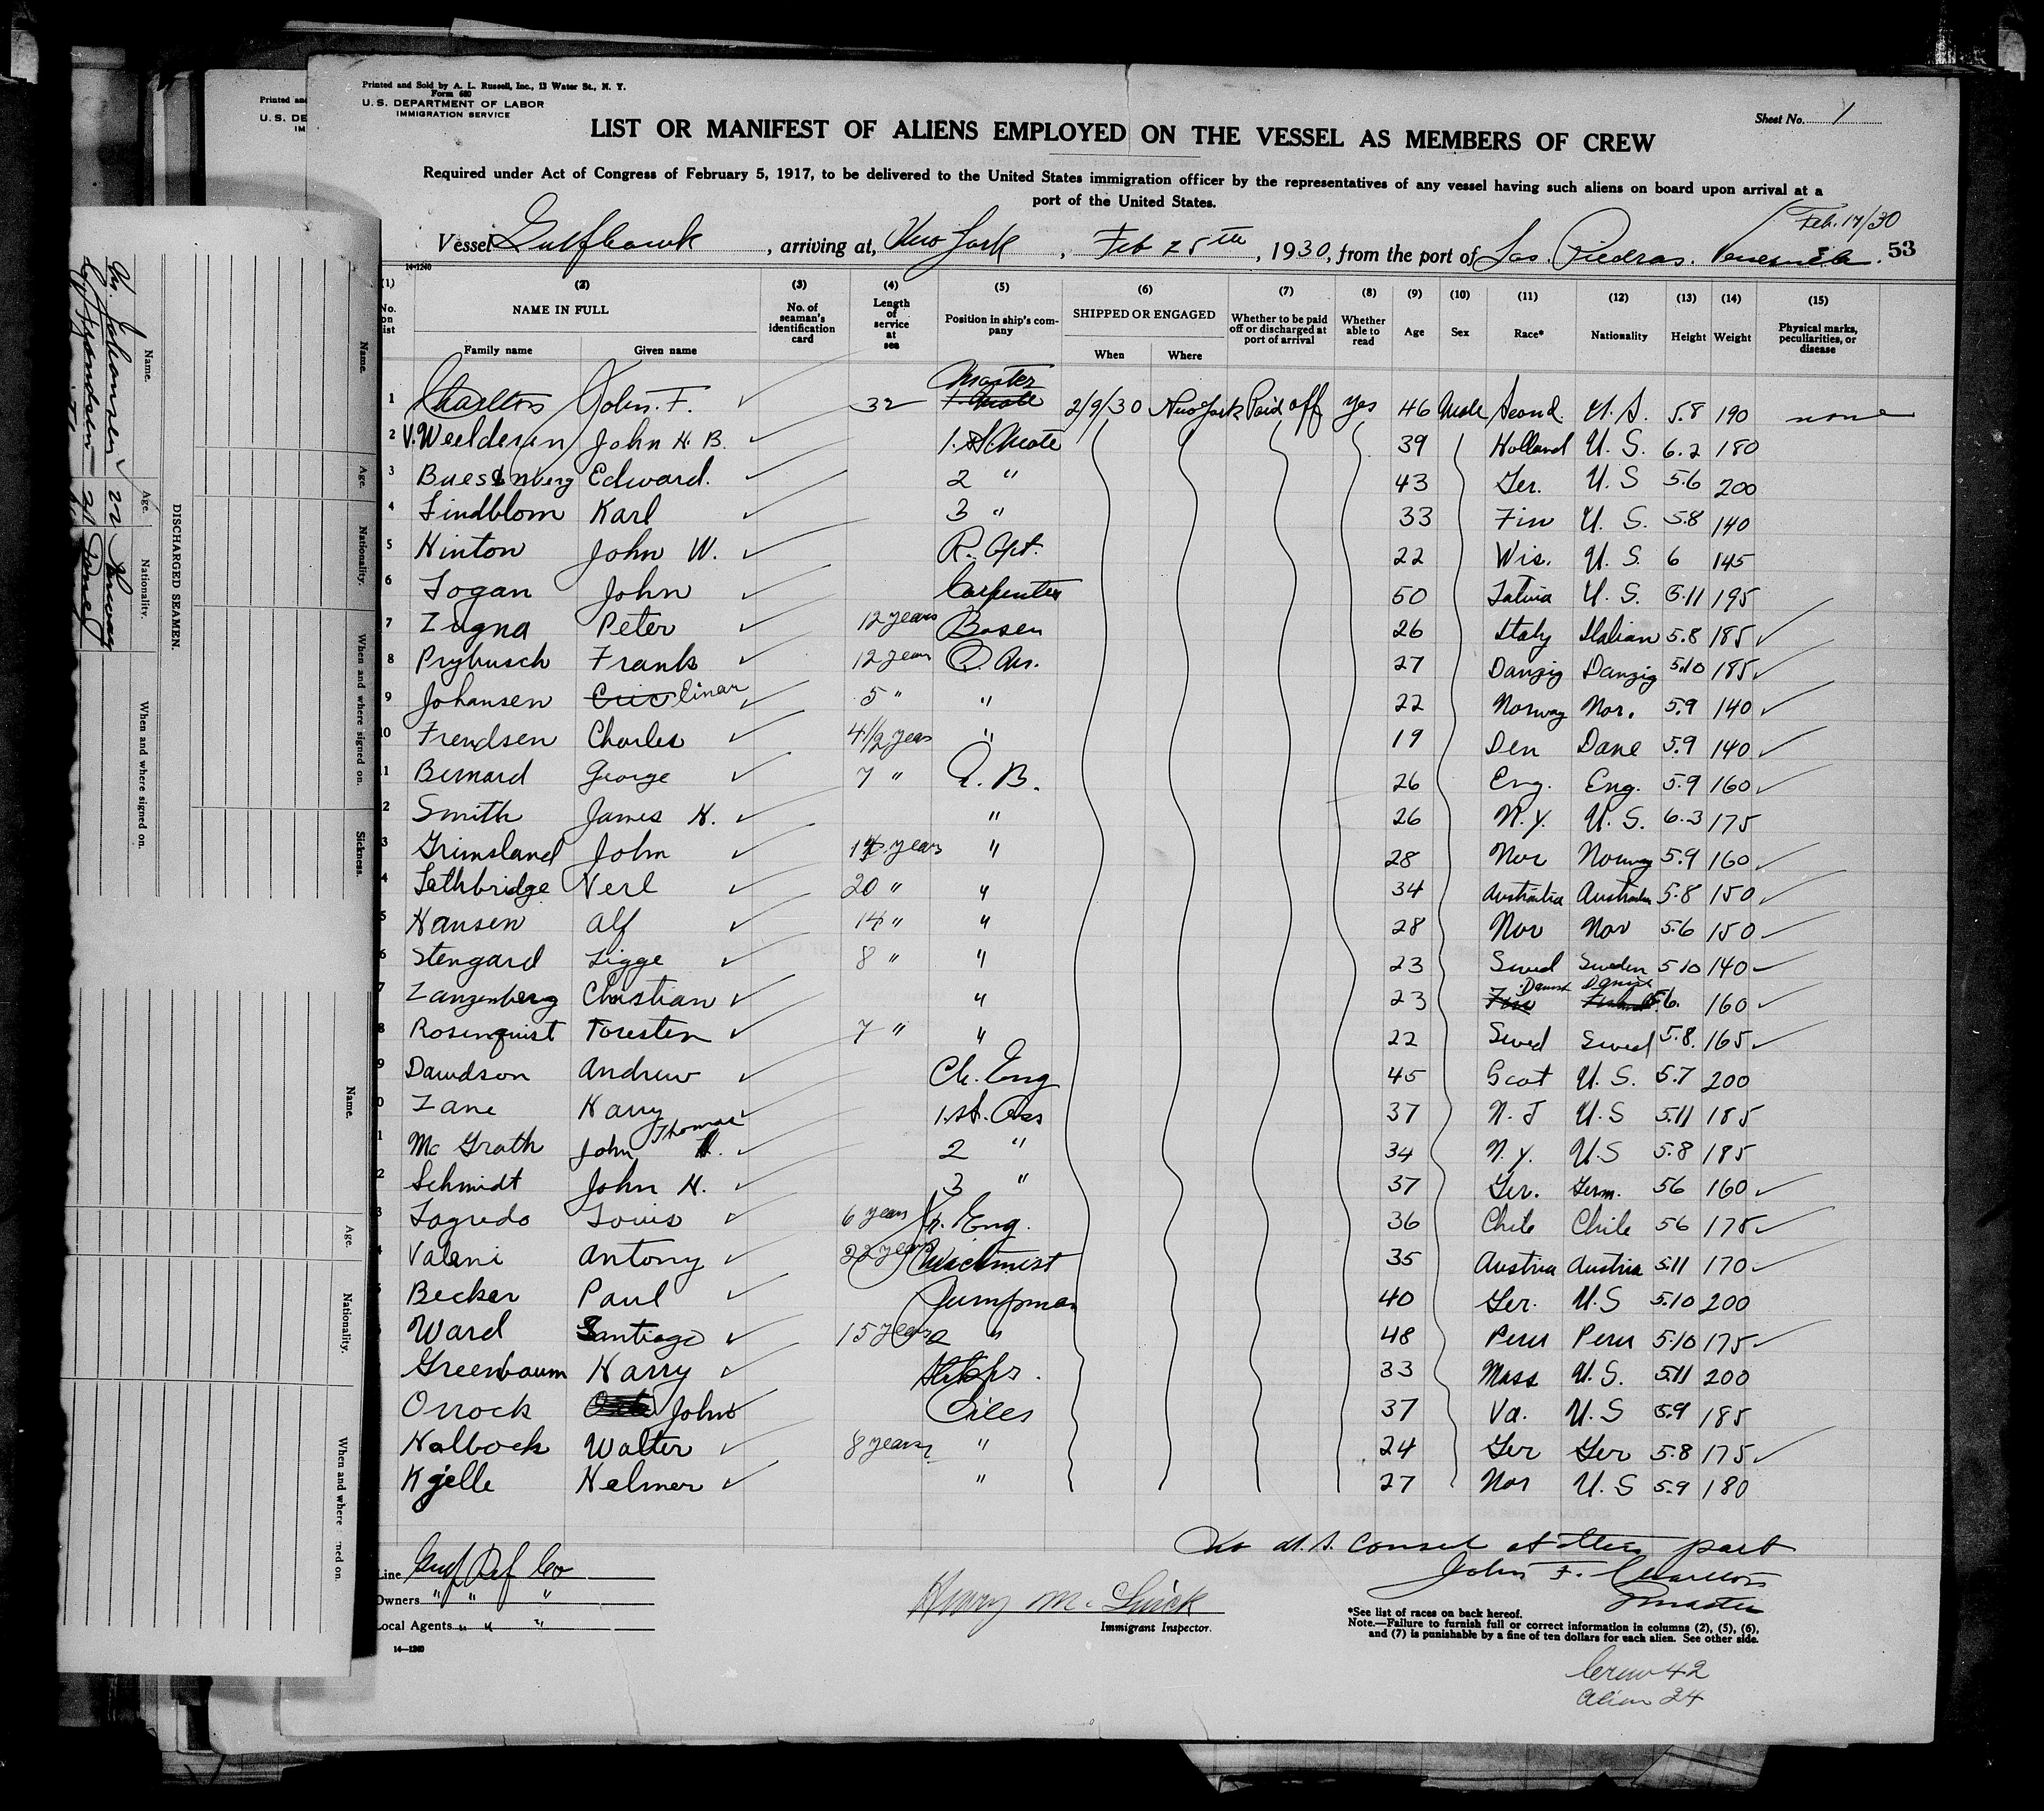 Printed and Sold by A. L. Russell, Inc., 13 Water St., N. Y.
Form 680
U. S. DEPARTMENT OF LABOR
IMMIGRATION SERVICE
Sheet No. 1
LIST OR MANIFEST OF ALIENS EMPLOYED ON THE VESSEL AS MEMBERS OF CREW
Required under Act of Congress of February 5, 1917, to be delivered to the United States immigration officer by the representatives of any vessel having such aliens on board upon arrival at a
port of the United States.
Feb. 17/30
Vessel Gulfhawk, arriving at, New York, Feb 25th, 1930, from the port of Las Piedras. Venezuela. 53
14-1240
(1) (2) (3) (4) (5) (6) (7) (8) (9) (10) (11) (12) (13) (14) (15)
No. on list NAME IN FULL Family name Given name No. of seaman's identification card Length of service at sea Position in ship's company SHIPPED OR ENGAGED When Where Whether to be paid off or discharged at port of arrival Whether able to read Age Sex Race* Nationality Height Weight Physical marks, peculiarities, or disease
1 Charlton John. F. 32 Master 1. Mate 2/9/30 New York Paid off yes 46 Male Scand. U. S. 5.8 190 none
2 V. Weelderen John H. B. 1. St. Mate 39 Holland U. S. 6.2 180
3 Edward. 2 " 43 Ger. U. S 5.6 200
4 Lindblom Karl 3 " 33 Fin U. S. 5.8 140
5 Hinton John W. R. Opt. 22 Wis. U. S. 6 145
6 Logan John Carpenter 50 Latvia U. S. 5.11 195
7 Zugna Peter 12 years Bosen 26 Italy Italian 5.8 185
8 Prybusch Frank 12 years Q. Mr. 27 Danzig Danzig 5.10 185
9 Johansen Eric Einar 5 " " 22 Norway Nor. 5.9 140
10 Frendsen Charles 4 1/2 years " 19 Den Dane 5.9 140
11 Bernard George 7 " A. B. 26 Eng. Eng. 5.9 160
2 Smith James H. " 26 N. Y. U. S. 6.3 175
3 Grimsland John years " 28 Nor Norway 5.9 160
4 Lethbridge Verl 20 " " 34 Australia Australian 5.8 150
5 Hansen Alf 14 " " 28 Nor Nor 5.6 150
6 Stengard Sigge 8 " " 23 Swed Sweden 5 10 140
7 Zangenberg Christian " 23 Fin Danish Danish 5.6. 160
8 Rosenquist Toresten 7 " " 22 Swed Swed 5.8. 165
9 Davidson Andrew Ch. Eng 45 Scot U. S. 5.7 200
0 Lane Harry 1. st. Ass 37 N. J U. S 5.11 185
1 Mc Grath John Thomas 2 " 34 N. Y. U. S 5.8 185
2 Schmidt John H. 3 " 37 Ger. Germ. 56 160
3 Lagredo Louis 6 years Jr. Eng. 36 Chile Chile 56 178
4 Valeni Antony 22 years Machinist 35 Austria Austria 5.11 170
Becker Paul Pumpman 40 Ger. U. S 5.10 200
Ward Santiago 15 years 2 " 48 Peru Peru 5.10 175
Greenbaum Harry 33 Mass U. S. 5.11 200
Orrock John Oiler 37 Va. U. S 5.9 185
Halbock Walter 8 years " 24 Ger Ger 5.8 175
Kjelle Helmer " 27 Nor U. S 5.9 180
No U. S. Consul at this port
John F. Charlton
Master
Line Gulf Ref Co
Owners " " "
Local Agents " " "
14-1240
Henry M. Quick
Immigrant Inspector.
*See list of races on back hereof.
Note.—Failure to furnish full or correct information in columns (2), (5), (6),
and (7) is punishable by a fine of ten dollars for each alien. See other side.
Crew 42
Alien 24
Printed and
U. S. DE
IM
DISCHARGED SEAMEN.
Name. Age. Nationality. When and where signed on.
Johansen 22 Norway
Name. Age. Nationality. When and where signed on. Sickness.
Name. Age. Nationality. When and where ned on.